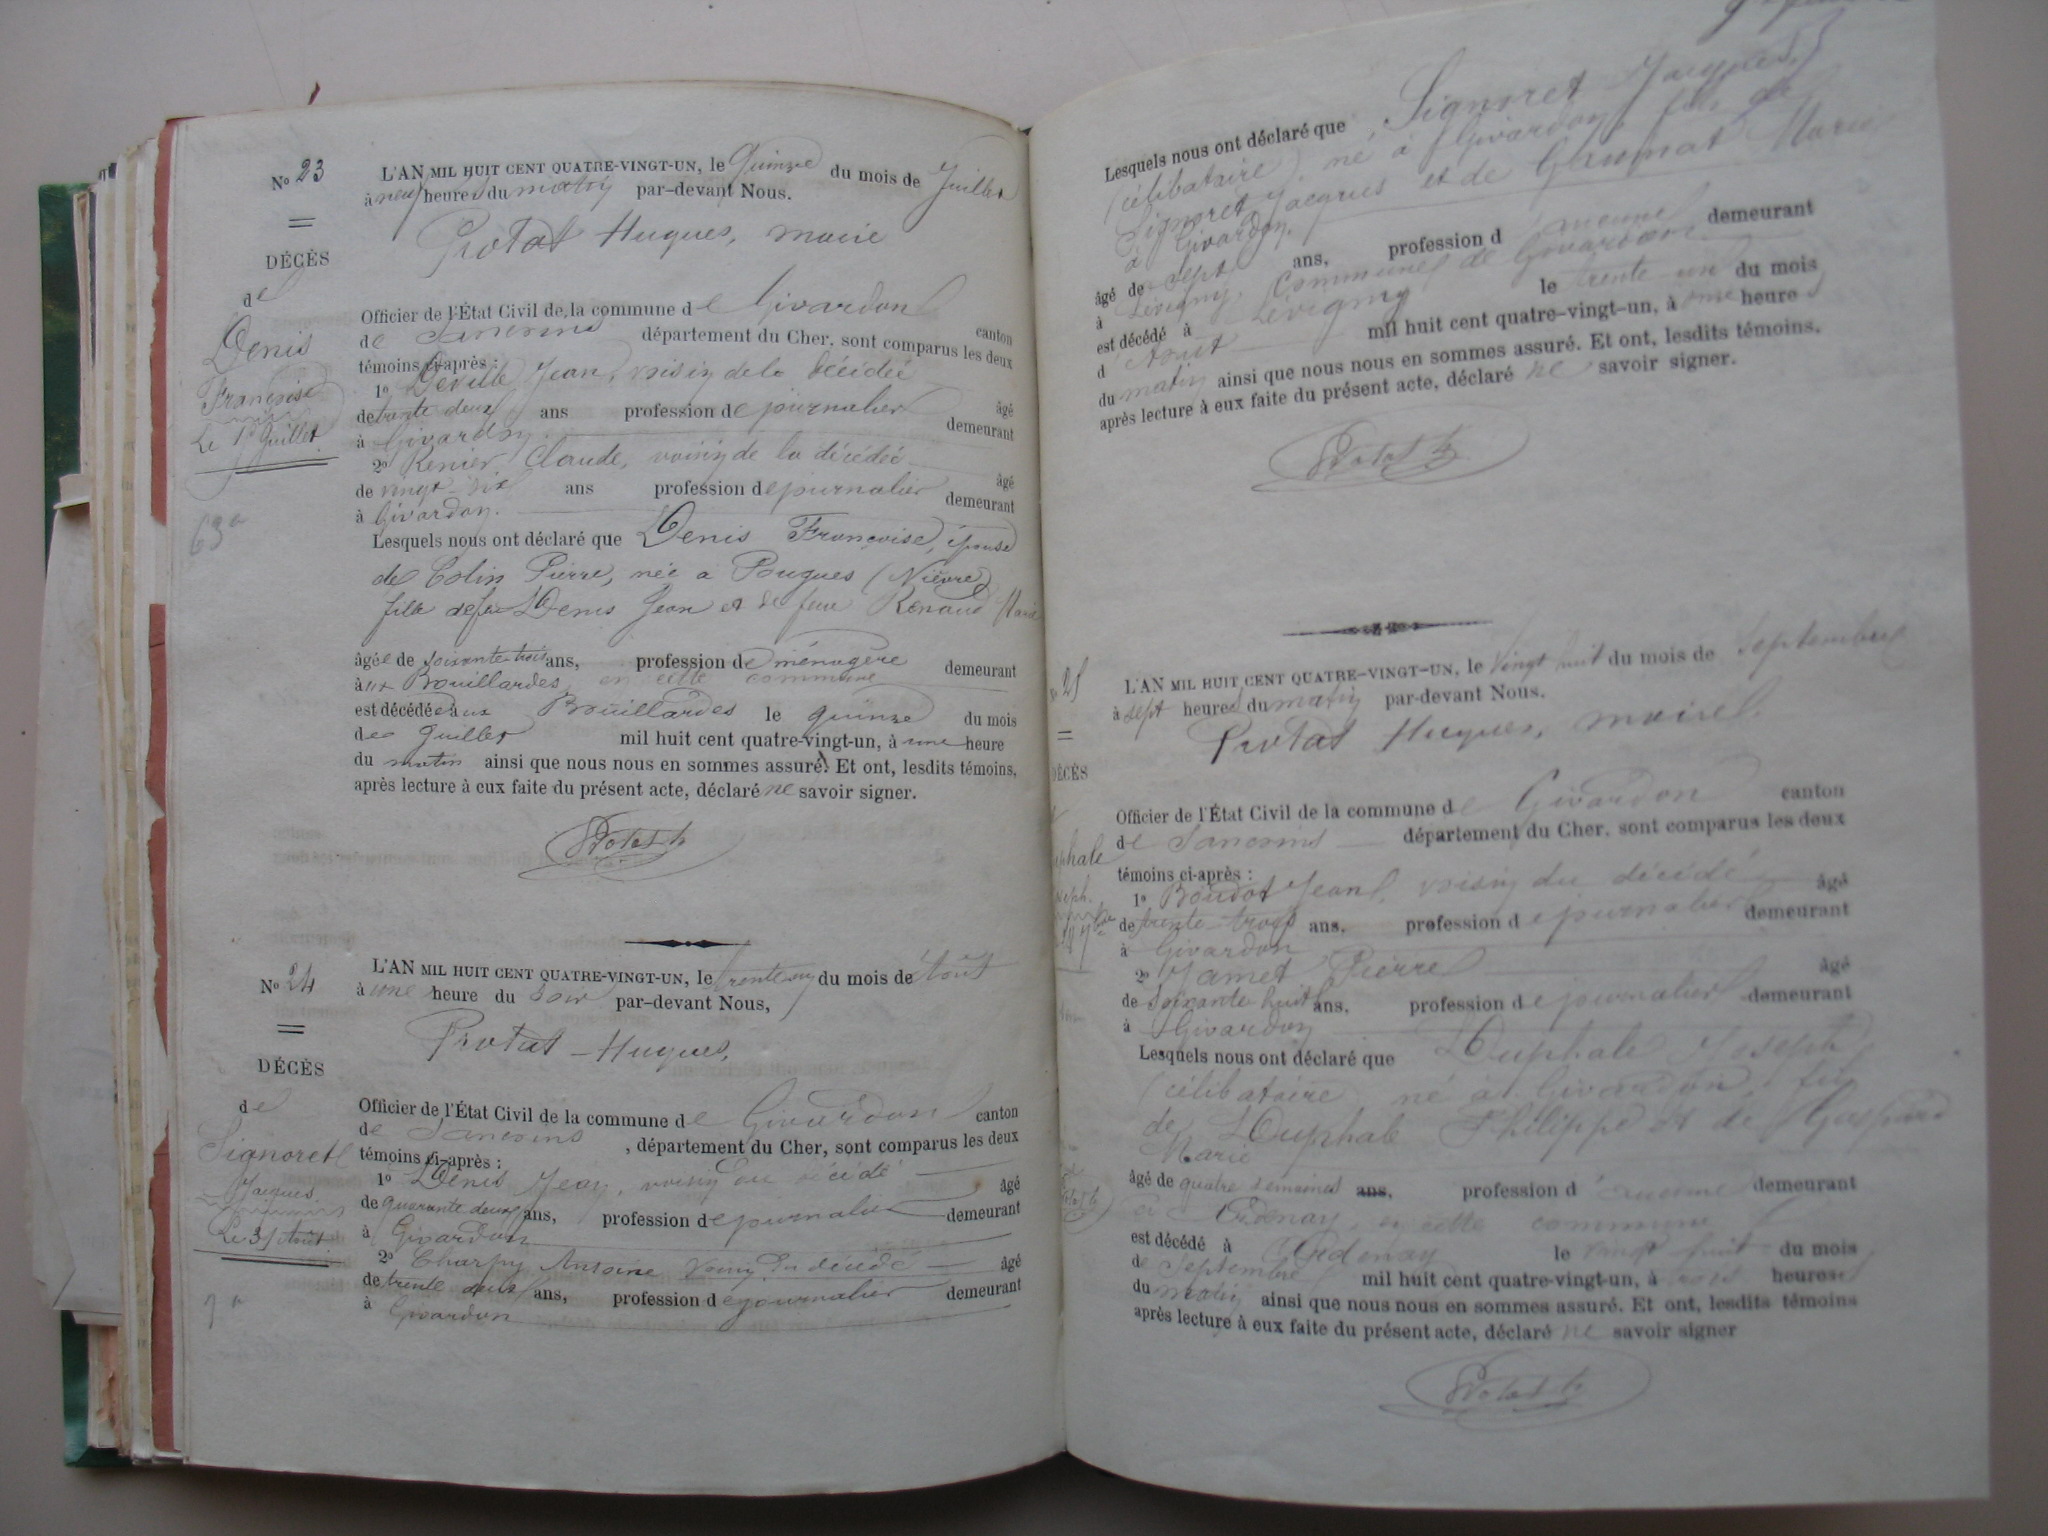 No 23
DÉCÈS
de
Denis
Françoise
Le 15 Juillet
63 a
L'AN MIL HUIT CENT QUATRE-VINGT-UN, le Quinze du mois de Juillet
à neuf heures du matin par-devant Nous.
Protat Hugues, maire
Officier de l'État Civil de la commune de Givardon canton
de Sancoins département du Cher, sont comparus les deux
témoins ci-après :
1o Deville Jean, voisin de la décédée âgé
de trente deux ans profession de journalier demeurant
à Givardon.
2o Renier Claude, voisin de la décédée âgé
de vingt-six ans profession de journalier demeurant
à Givardon.
Lesquels nous ont déclaré que Denis Françoise, épouse
de Colin Pierre, née à Pougues (Nièvre)
fille de feu Denis Jean et de feue Renaud Marie
âgée de soixante trois ans, profession de ménagère demeurant
aux Bouillardes, en cette commune
est décédée aux Bouillardes le quinze du mois
de Juillet mil huit cent quatre-vingt-un, à une heure
du matin ainsi que nous nous en sommes assuré. Et ont, lesdits témoins,
après lecture à eux faite du présent acte, déclaré ne savoir signer.
Protat h
No 24
DÉCÈS
de
Signoret
Jacques
Le 31 Août
7 a
L'AN MIL HUIT CENT QUATRE-VINGT-UN, le trente un du mois de Août
à une heure du soir par-devant Nous,
Protat Hugues,
Officier de l'État Civil de la commune de Givardon canton
de Sancoins, département du Cher, sont comparus les deux
témoins ci-après :
1o Denis Jean, voisin du décédé âgé
de quarante deux ans, profession de journalier demeurant
à Givardon
2o Charpy Antoine voisin du décédé âgé
de trente deux ans, profession de journalier demeurant
à Givardon
Lesquels nous ont déclaré que Signoret Jacques,
(célibataire) né à Givardon, fils de
Signoret Jacques et de Marie
à Givardon.
âgé de sept ans, profession d demeurant
à Lévigny, commune de Givardon
est décédé à Lévigny le trente-un du mois
d Août mil huit cent quatre-vingt-un, à onze heures
du matin ainsi que nous nous en sommes assuré. Et ont, lesdits témoins.
après lecture à eux faite du présent acte, déclaré ne savoir signer.
Protat h
No 25
DÉCÈS
L'AN MIL HUIT CENT QUATRE-VINGT-UN, le vingt huit du mois de Septembre
à sept heures du matin par-devant Nous.
Protat Hugues, maire.
Officier de l'État Civil de la commune de Givardon canton
de Sancoins département du Cher, sont comparus les deux
témoins ci-après :
1o Boudot Jean, voisin du décédé âgé
de trente-trois ans. profession de journalier demeurant
à Givardon
2o Jamet Pierre âgé
de soixante huit ans, profession de journalier demeurant
à Givardon
Lesquels nous ont déclaré que Duphale Joseph
(célibataire) né à Givardon, fils
de Duphale Philippe et de Gaspard
Marie
âgé de quatre semaines ans, profession d demeurant
à Ardenay, en cette commune
est décédé à Ardenay le vingt huit du mois
de Septembre mil huit cent quatre-vingt-un, à trois heures
du matin ainsi que nous nous en sommes assuré. Et ont, lesdits témoins
après lecture à eux faite du présent acte, déclaré ne savoir signer
Protat h